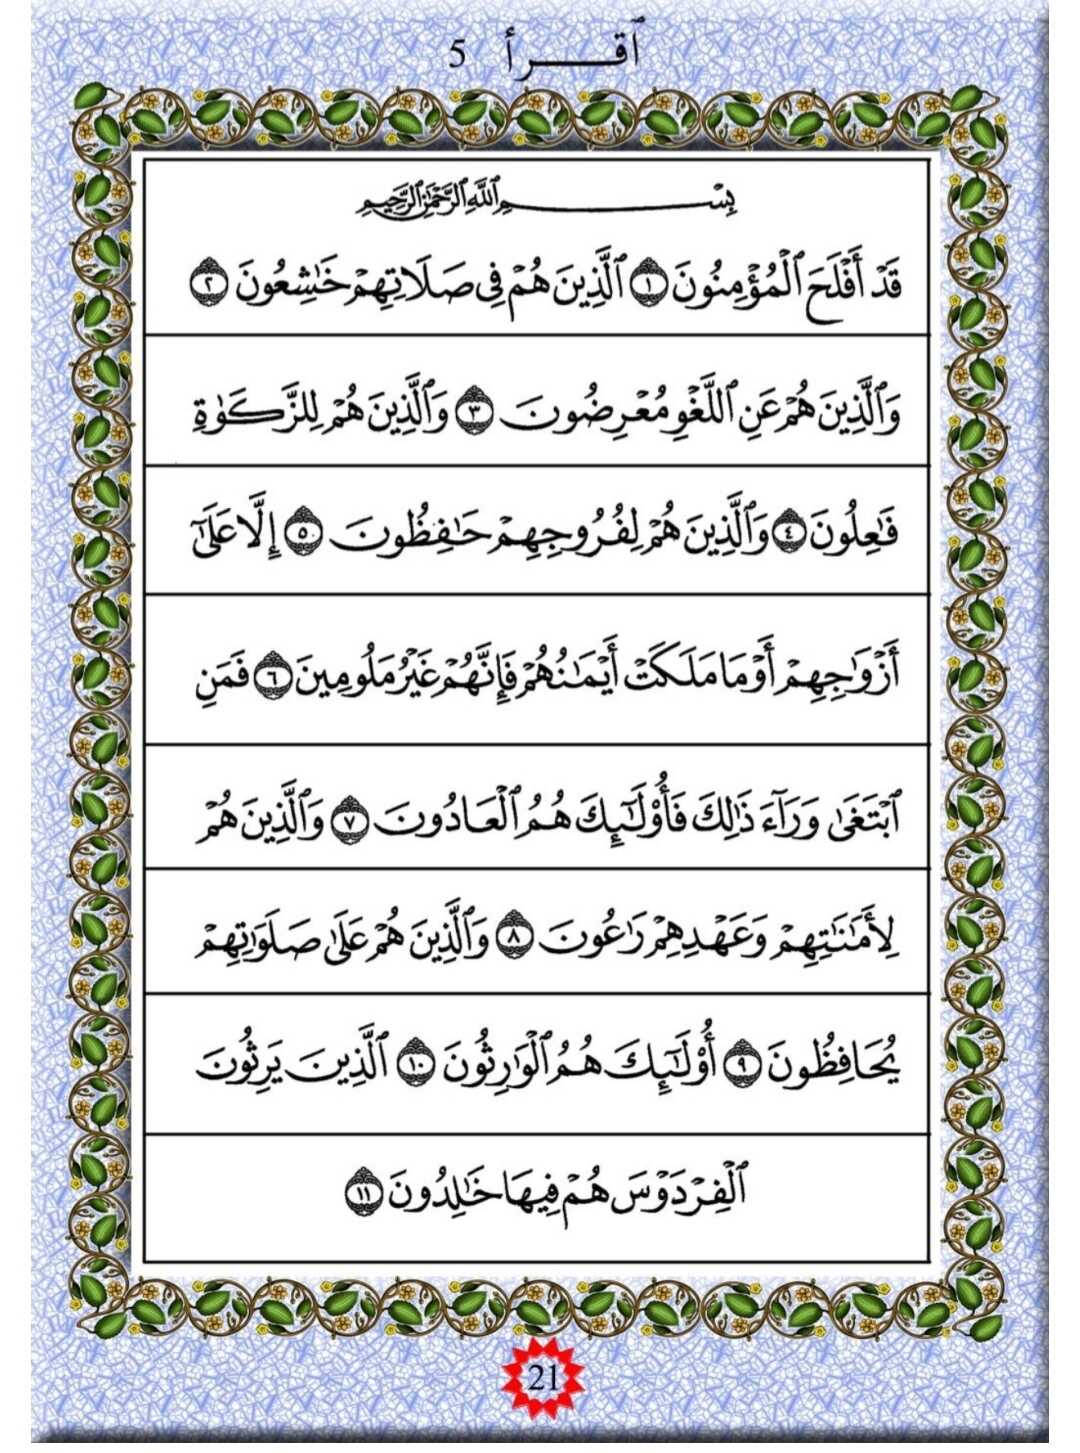 ٱقــــرأ 5
بِسْــــــــمِ ٱللَّهِ ٱلرَّحْمَٰنِ ٱلرَّحِيمِ
قَدْ أَفْلَحَ ٱلْمُؤْمِنُونَ ١ ٱلَّذِينَ هُمْ فِى صَلَاتِهِمْ خَٰشِعُونَ ٢
وَٱلَّذِينَ هُمْ عَنِ ٱللَّغْوِ مُعْرِضُونَ ٣ وَٱلَّذِينَ هُمْ لِلزَّكَوٰةِ
فَٰعِلُونَ ٤ وَٱلَّذِينَ هُمْ لِفُرُوجِهِمْ حَٰفِظُونَ ٥ إِلَّا عَلَىٰٓ
أَزْوَٰجِهِمْ أَوْ مَا مَلَكَتْ أَيْمَٰنُهُمْ فَإِنَّهُمْ غَيْرُ مَلُومِينَ ٦ فَمَنِ
ٱبْتَغَىٰ وَرَآءَ ذَٰلِكَ فَأُو۟لَٰٓئِكَ هُمُ ٱلْعَادُونَ ٧ وَٱلَّذِينَ هُمْ
لِأَمَٰنَٰتِهِمْ وَعَهْدِهِمْ رَٰعُونَ ٨ وَٱلَّذِينَ هُمْ عَلَىٰ صَلَوَٰتِهِمْ
يُحَافِظُونَ ٩ أُو۟لَٰٓئِكَ هُمُ ٱلْوَٰرِثُونَ ١٠ ٱلَّذِينَ يَرِثُونَ
ٱلْفِرْدَوْسَ هُمْ فِيهَا خَٰلِدُونَ ١١
21